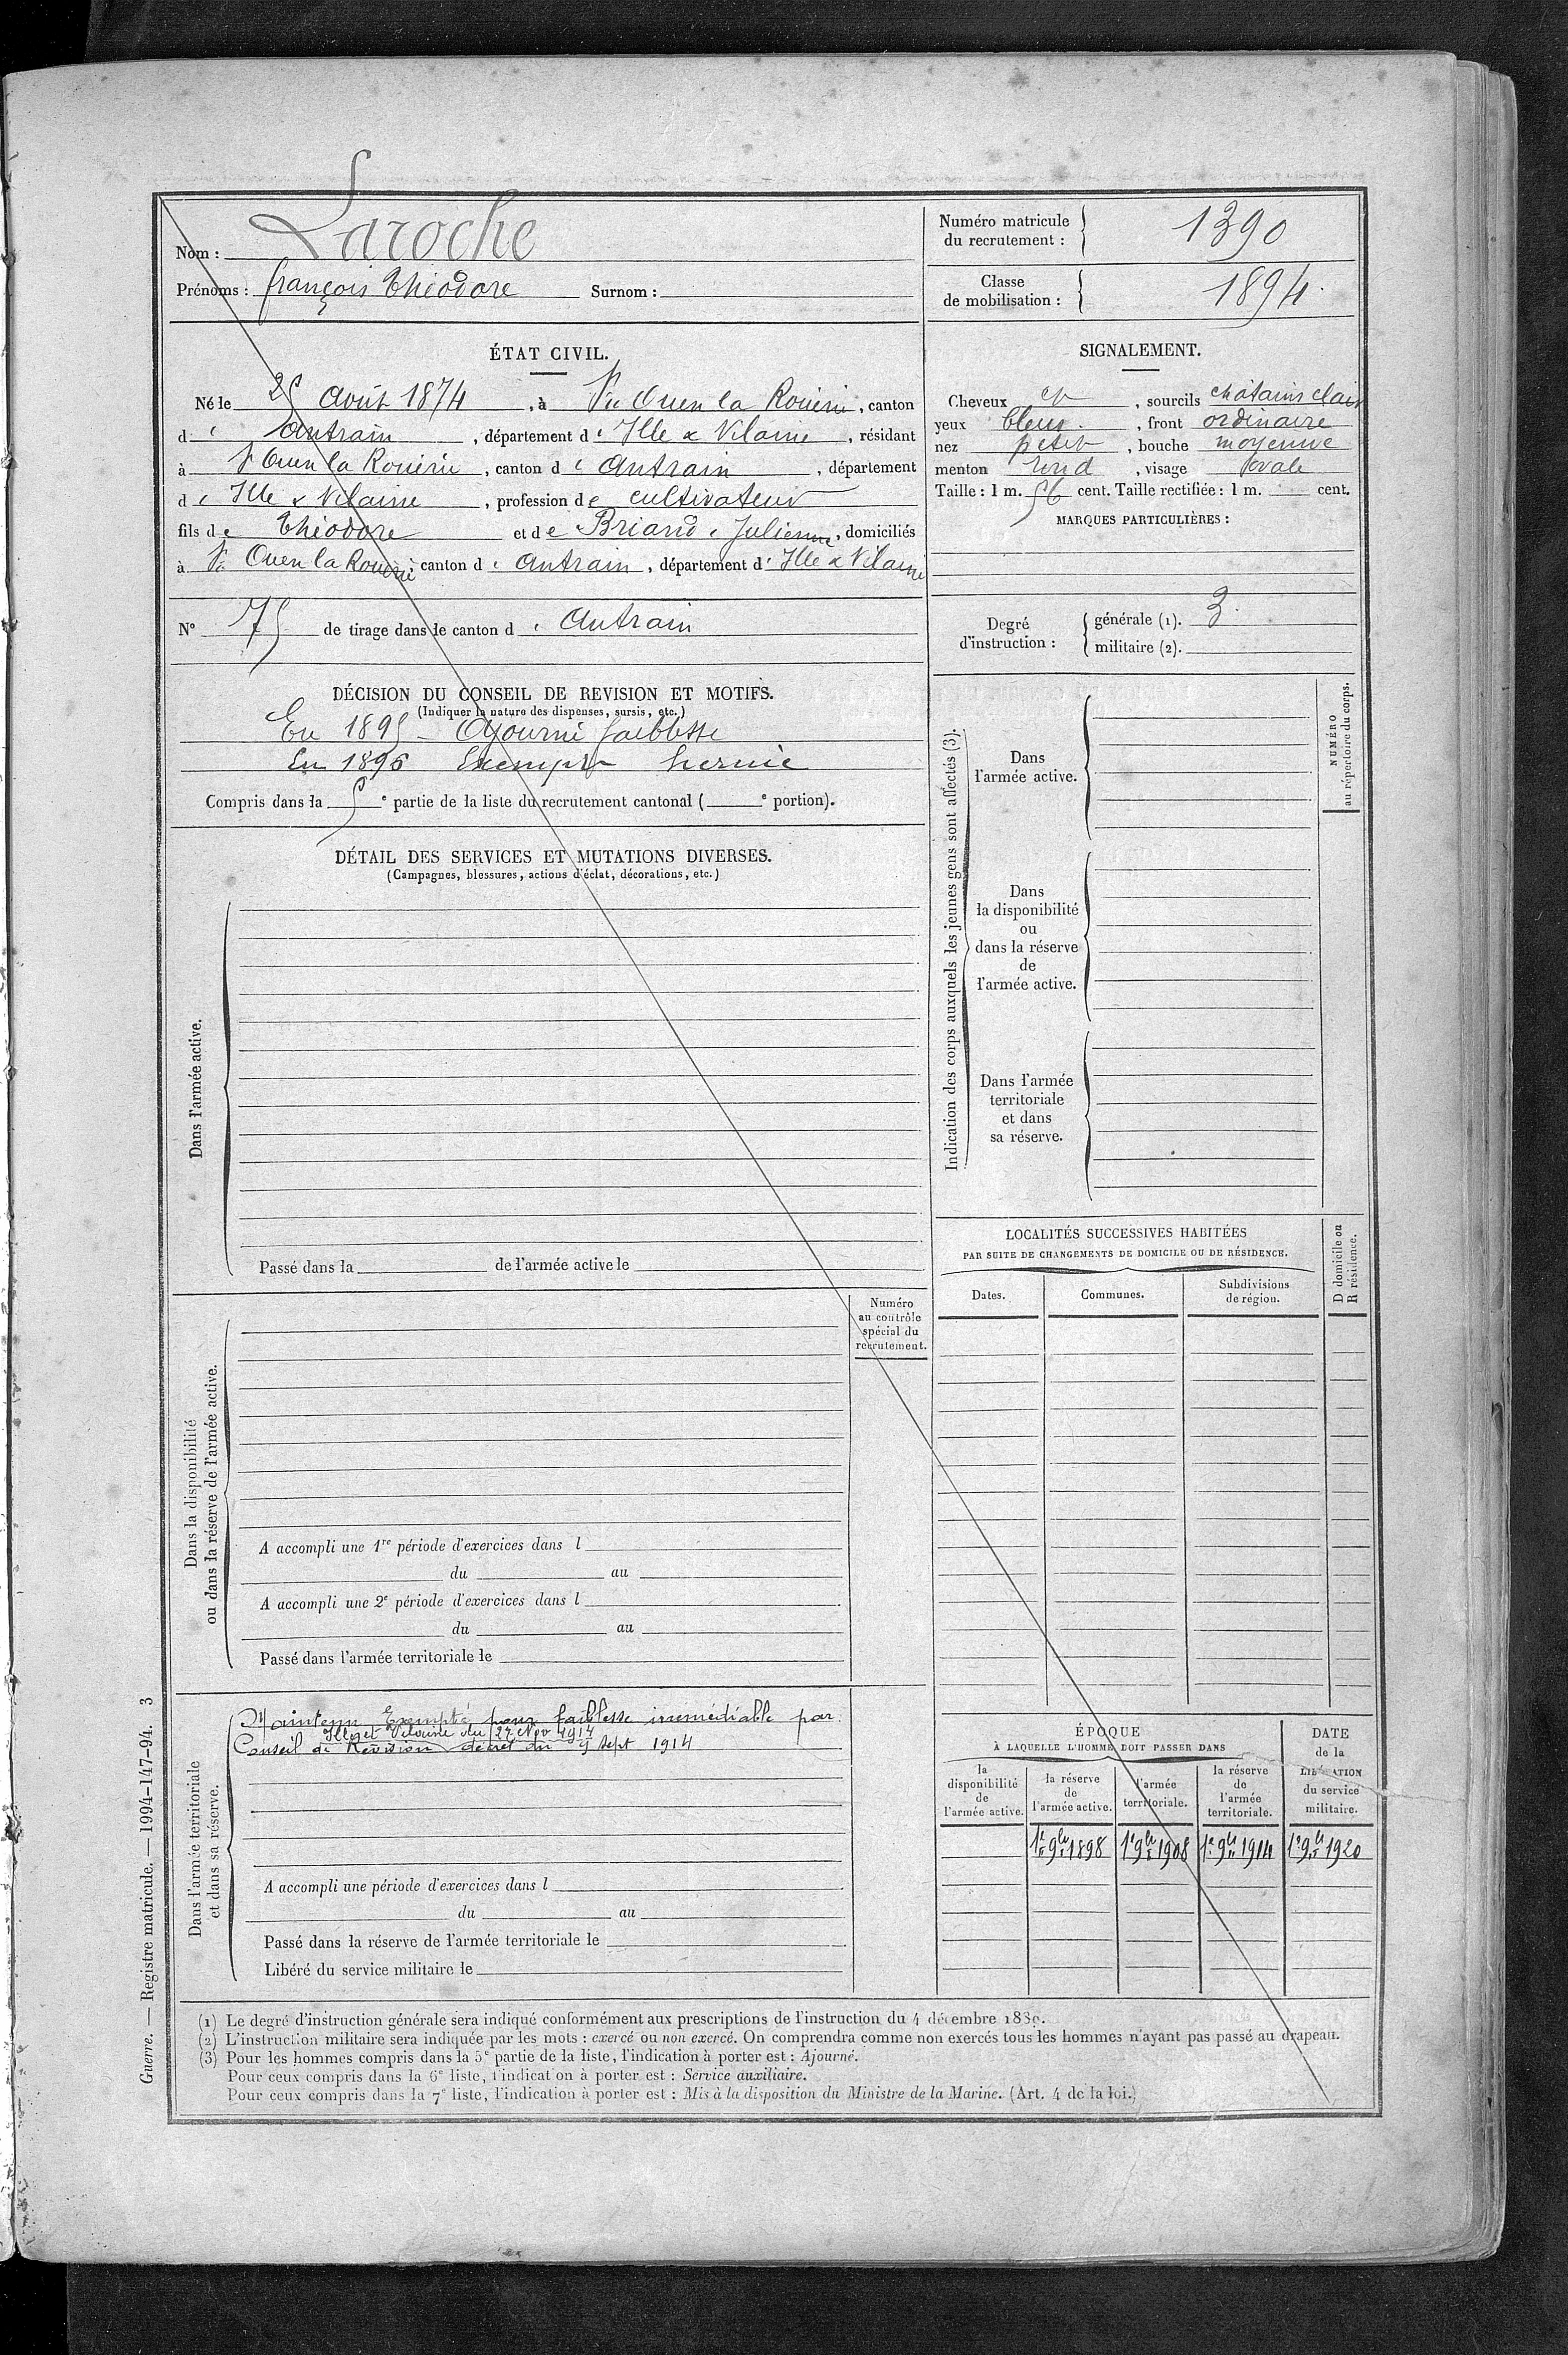 Nom : Laroche
Prénoms : françois Théodore Surnom :
Numéro matricule
du recrutement : 1390
Classe
de mobilisation : 1894.
ÉTAT CIVIL.
Né le 25 Août 1874, à St Ouen la Rouërie, canton
d'Antrain, département d'Ille & Vilaine, résidant
à St Ouen la Rouërie, canton d'Antrain, département
d'Ille & Vilaine, profession de cultivateur
fils de Théodore et de Briand, Julienne, domiciliés
à St Ouen la Rouërie, canton d'Antrain, département d'Ille & Vilaine
N° 75 de tirage dans le canton d'Antrain
DÉCISION DU CONSEIL DE REVISION ET MOTIFS.
(Indiquer la nature des dispenses, sursis, etc.)
En 1895 - Ajourné faiblesse
En 1896 Exempté hernie
Compris dans la 5e partie de la liste du recrutement cantonal ( e portion).
DÉTAIL DES SERVICES ET MUTATIONS DIVERSES.
(Campagnes, blessures, actions d'éclat, décorations, etc.)
Dans l'armée active.
Passé dans la de l'armée active le
Numéro
au contrôle
spécial du
recrutement.
Dans la disponibilité
ou dans la réserve de l'armée active.
A accompli une 1re période d'exercices dans l
du au
A accompli une 2e période d'exercices dans l
du au
Passé dans l'armée territoriale le
Dans l'armée territoriale
et dans sa réserve.
Maintenu Exempté pour faiblesse irremédiable par
Ille et Vilaine du 27 Nov 1914
Conseil de Révision décret du 9 sept 1914
A accompli une période d'exercices dans l
du au
Passé dans la réserve de l'armée territoriale le
Libéré du service militaire le
SIGNALEMENT.
Cheveux et, sourcils châtains clairs
yeux bleus., front ordinaire
nez petit, bouche moyenne
menton rond, visage ovale
Taille : 1 m. 56 cent. Taille rectifiée : 1 m. cent.
MARQUES PARTICULIÈRES :
Degré
d'instruction :
générale (1). 3.
militaire (2).
Indication des corps auxquels les jeunes gens sont affectés (3).
Dans
l'armée active.
Dans
la disponibilité
ou
dans la réserve
de
l'armée active.
Dans l'armée
territoriale
et dans
sa réserve.
NUMÉRO
au répertoire du corps.
LOCALITÉS SUCCESSIVES HABITÉES
PAR SUITE DE CHANGEMENTS DE DOMICILE OU DE RÉSIDENCE.
Dates. Communes. Subdivisions
de région.
D domicile ou
R résidence.
ÉPOQUE
À LAQUELLE L'HOMME DOIT PASSER DANS
la
disponibilité
de
l'armée active.
la réserve
de
l'armée active.
l'armée
territoriale.
la réserve
de
l'armée
territoriale.
DATE
de la
LIBÉRATION
du service
militaire.
1er 9bre 1898 1er 9bre 1908 1er 9bre 1914 1er 9bre 1920
(1) Le degré d'instruction générale sera indiqué conformément aux prescriptions de l'instruction du 4 décembre 1889.
(2) L'instruction militaire sera indiquée par les mots : exercé ou non exercé. On comprendra comme non exercés tous les hommes n'ayant pas passé au drapeau.
(3) Pour les hommes compris dans la 5e partie de la liste, l'indication à porter est : Ajourné.
Pour ceux compris dans la 6e liste, l'indication à porter est : Service auxiliaire.
Pour ceux compris dans la 7e liste, l'indication à porter est : Mis à la disposition du Ministre de la Marine. (Art. 4 de la loi.)
Guerre. — Registre matricule. — 1994-147-94. 3